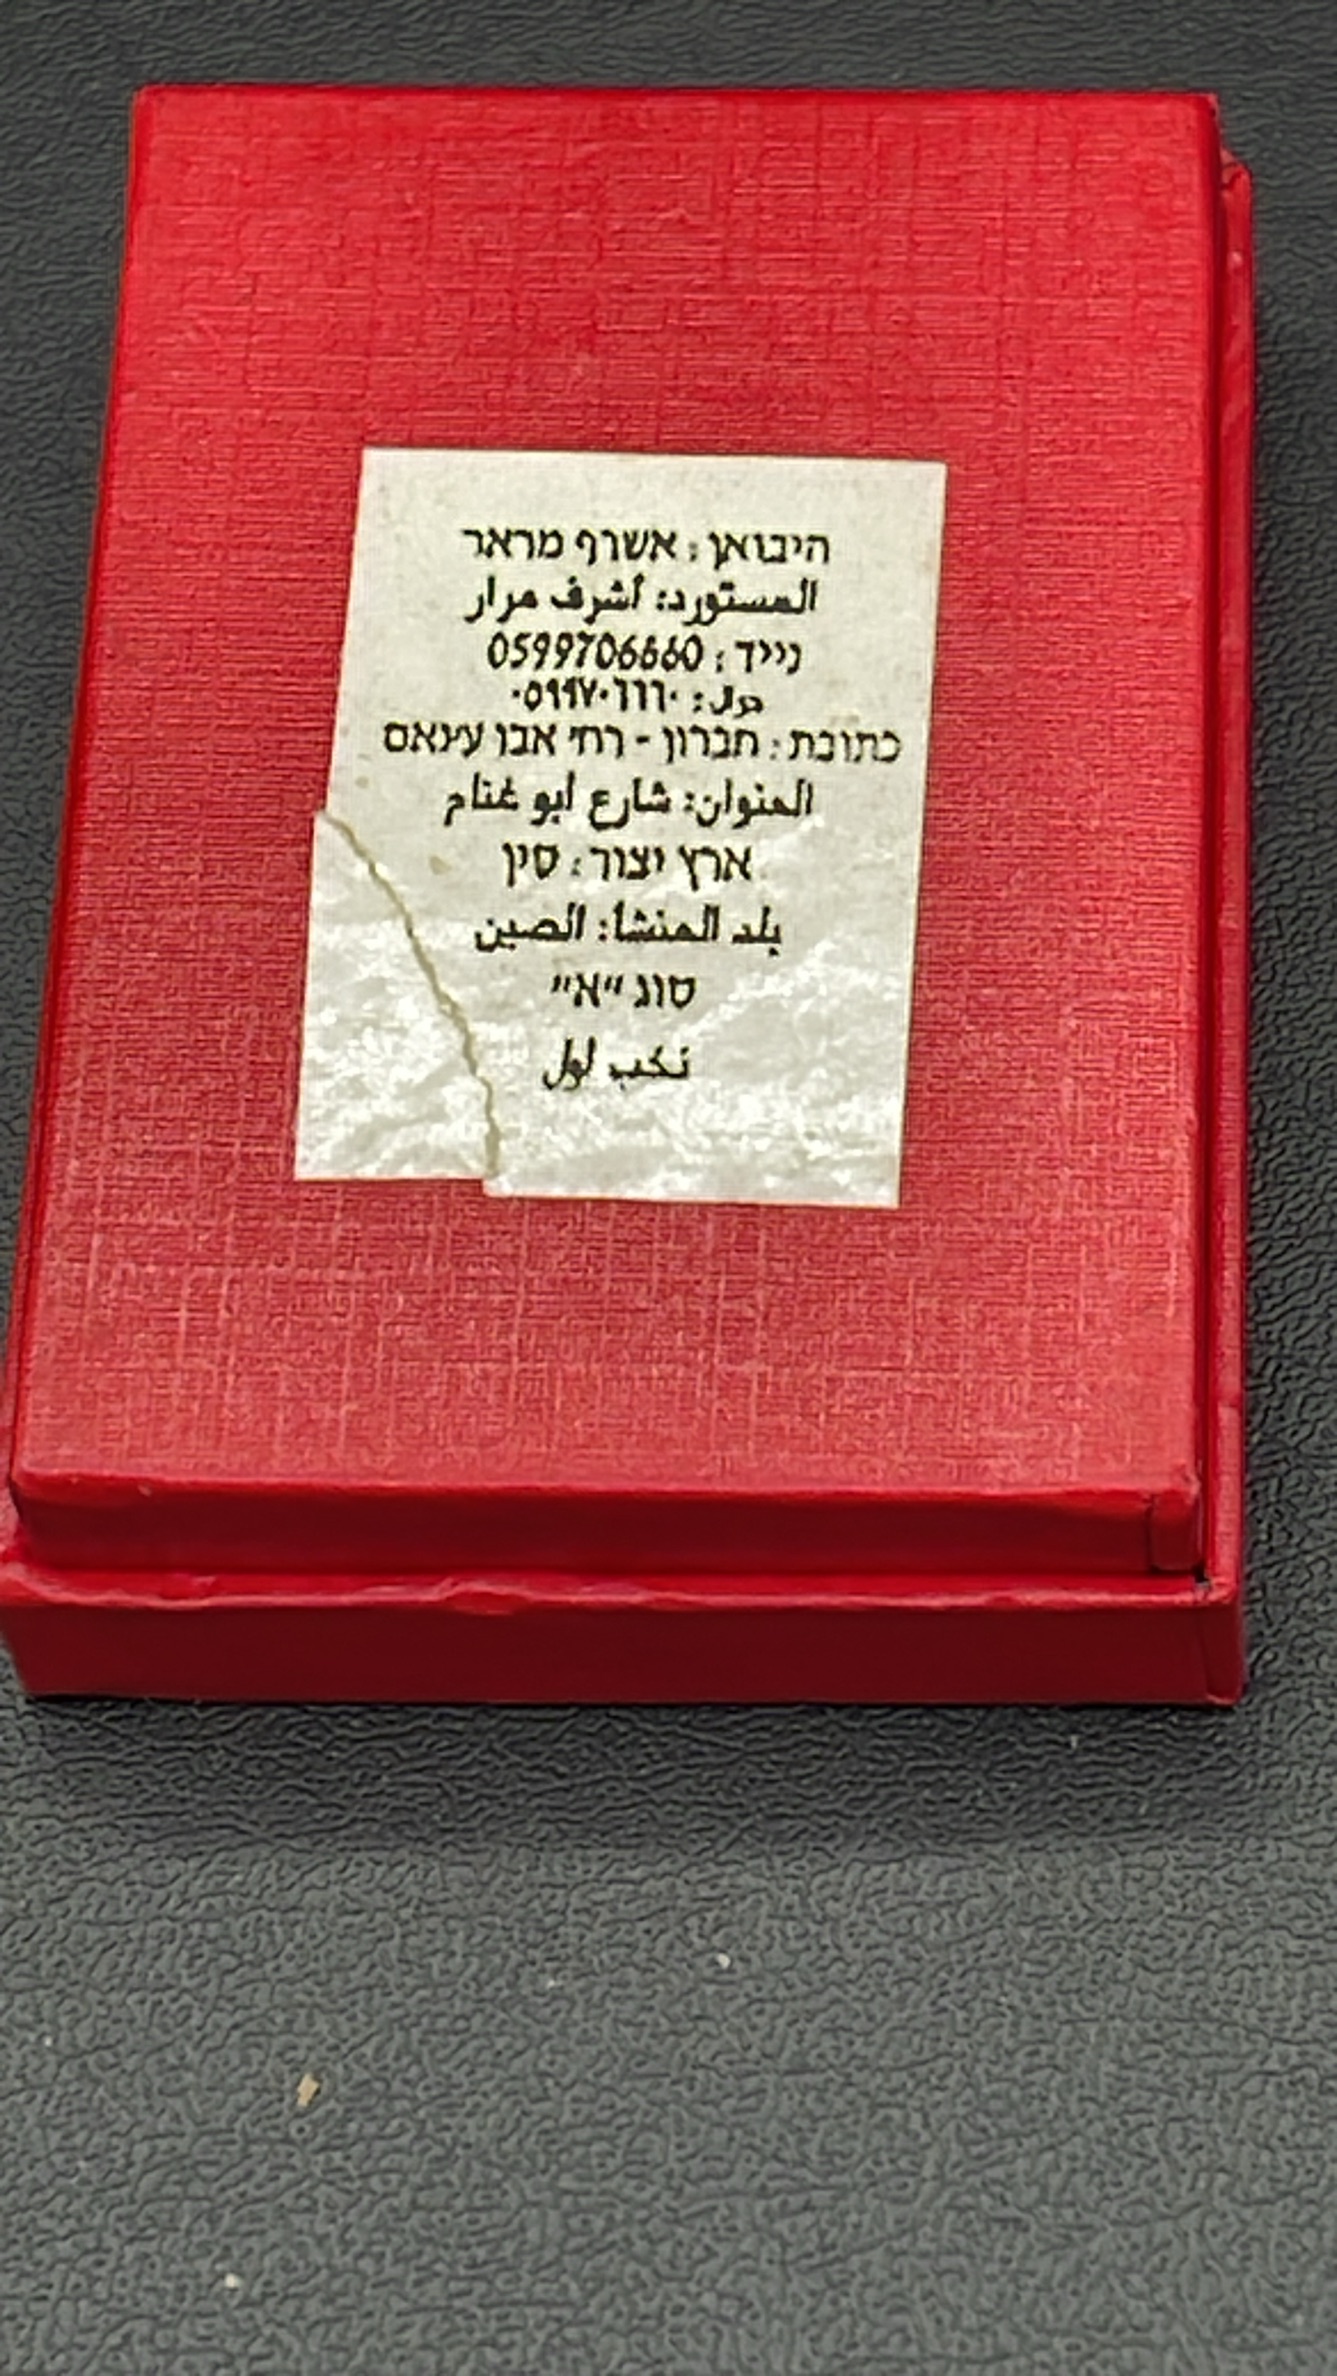 היבואן : אשרף מראר
المستورد: أشرف مرار
נייד : 0599706660
جوال: ٠٥٩٩٧٠٦٦٦٠
כתובת : חברון - רח׳ אבו ע׳נאם
العنوان: شارع أبو غنام
ארץ יצור : סין
بلد المنشأ: الصين
סוג "א"
نخب أول